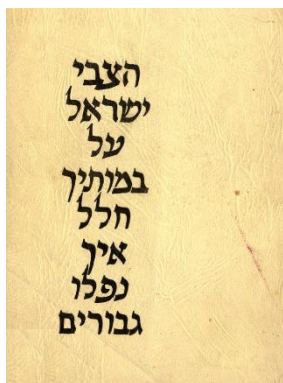 הצבי
ישראל
על
במותיך
חלל
איך
נפלו
גבורים